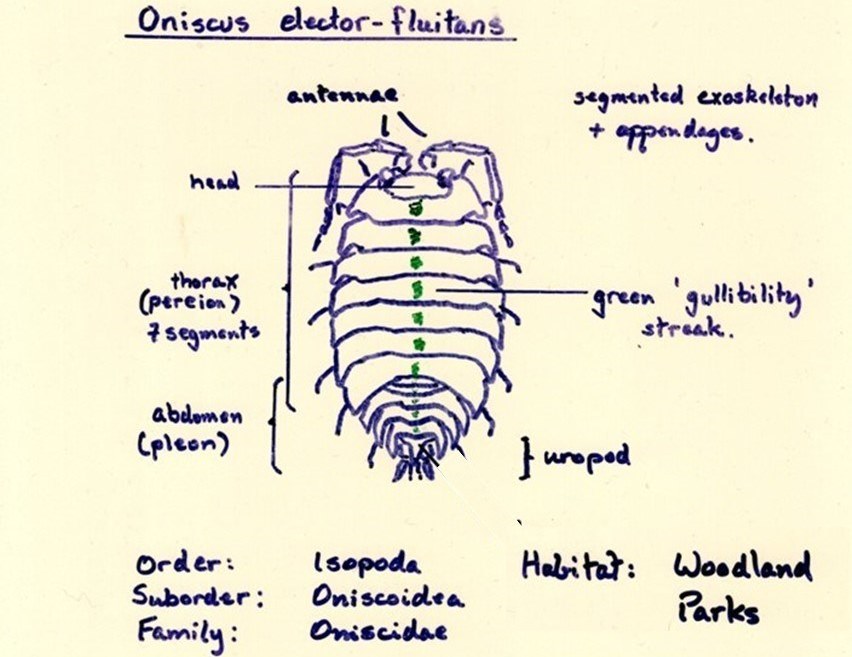 Oniscus elector-fluitans
antennae
segmented exoskeleton
+ appendages.
head
thorax
(pereion)
7 segments
green 'gullibility'
streak.
abdomen
(pleon)
} uropod
Order: Isopoda
Suborder: Oniscoidea
Family: Oniscidae
Habitat: Woodland
Parks